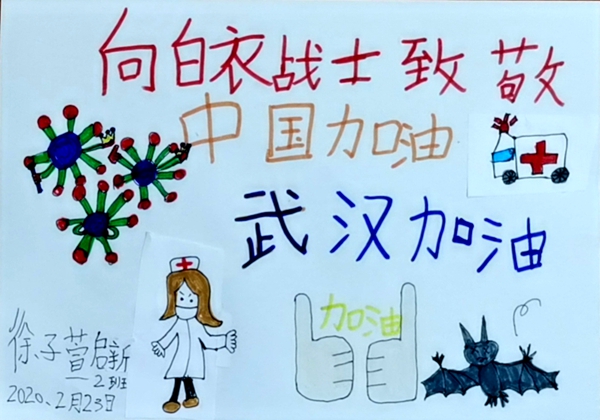 向白衣战士致敬
中国加油
武汉加油
加油
徐子萱启新
一2班
2020.2月23日